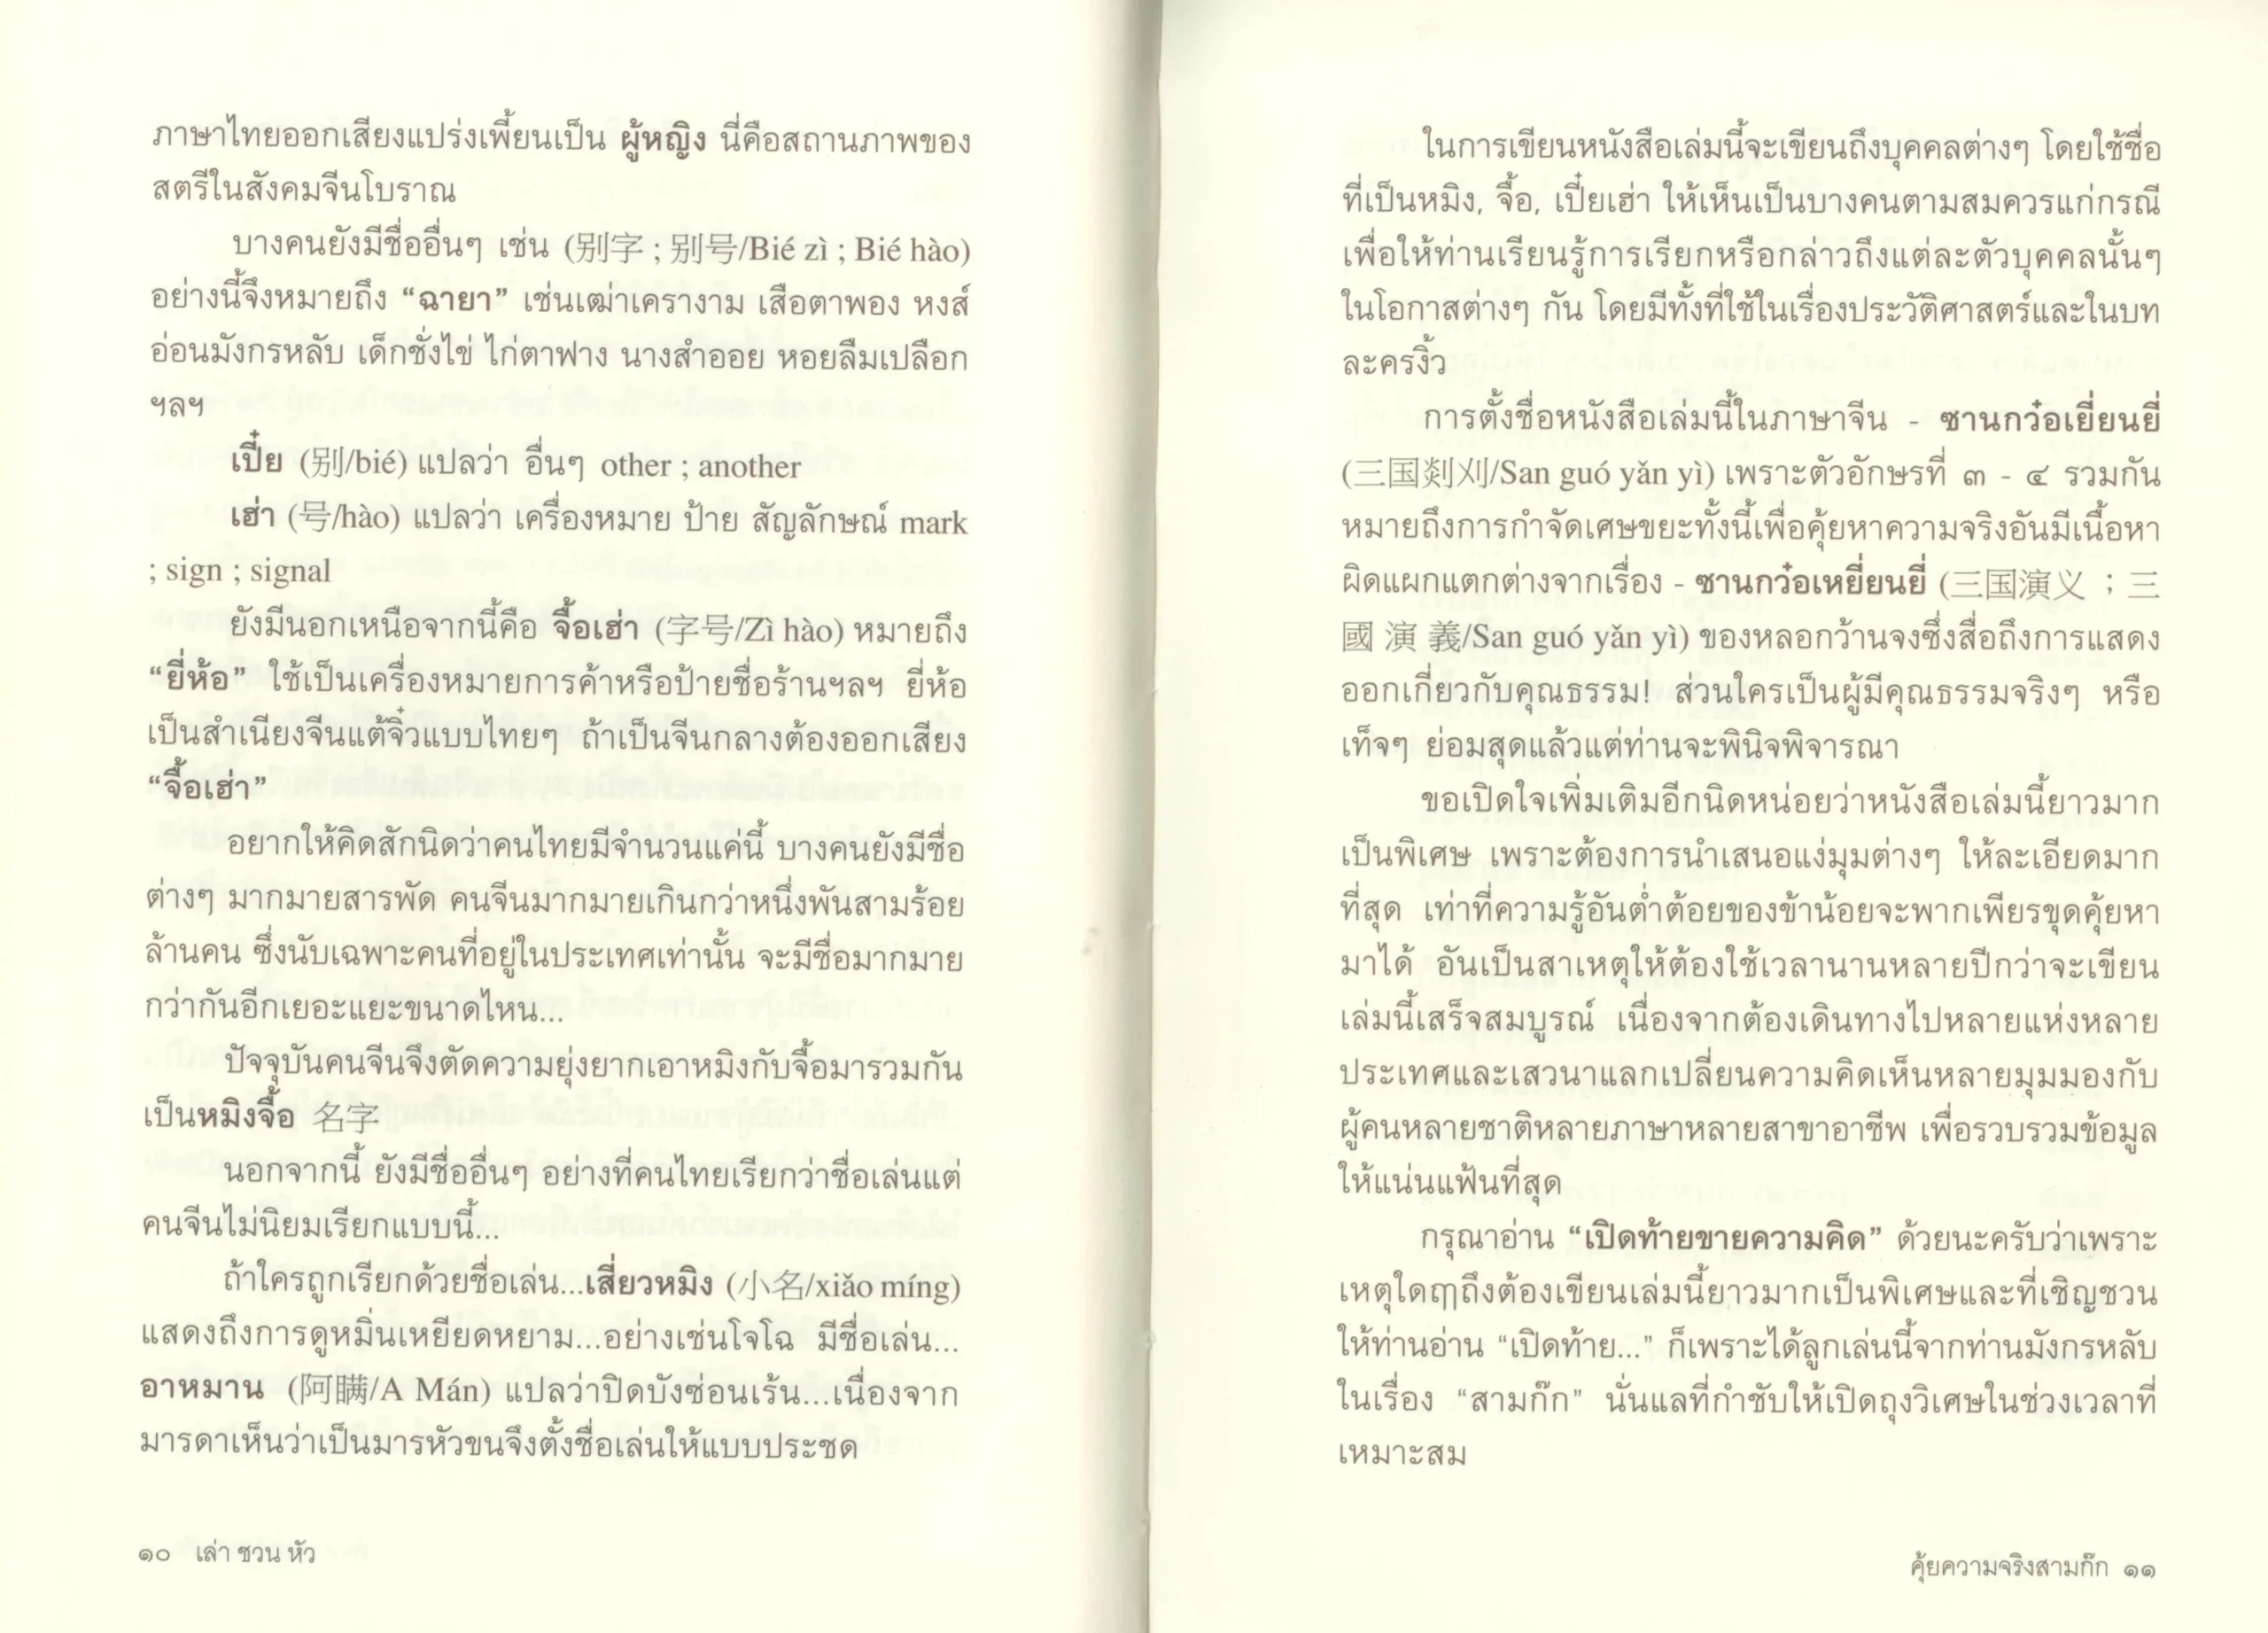 ภาษาไทยออกเสียงแปร่งเพี้ยนเป็น ผู้หญิง นี่คือสถานภาพของ
สตรีในสังคมจีนโบราณ
บางคนยังมีชื่ออื่นๆ เช่น (别字 ; 别号/Bié zì ; Bié hào)
อย่างนี้จึงหมายถึง “ฉายา” เช่นเฒ่าเครางาม เสือตาพอง หงส์
อ่อนมังกรหลับ เด็กชั่งไข่ ไก่ตาฟาง นางสำออย หอยลืมเปลือก
ฯลฯ
เปี๋ย (别/bié) แปลว่า อื่นๆ other ; another
เฮ่า (号/hào) แปลว่า เครื่องหมาย ป้าย สัญลักษณ์ mark
; sign ; signal
ยังมีนอกเหนือจากนี้คือ จื้อเฮ่า (字号/Zì hào) หมายถึง
“ยี่ห้อ” ใช้เป็นเครื่องหมายการค้าหรือป้ายชื่อร้านฯลฯ ยี่ห้อ
เป็นสำเนียงจีนแต้จิ๋วแบบไทยๆ ถ้าเป็นจีนกลางต้องออกเสียง
“จื้อเฮ่า”
อยากให้คิดสักนิดว่าคนไทยมีจำนวนแค่นี้ บางคนยังมีชื่อ
ต่างๆ มากมายสารพัด คนจีนมากมายเกินกว่าหนึ่งพันสามร้อย
ล้านคน ซึ่งนับเฉพาะคนที่อยู่ในประเทศเท่านั้น จะมีชื่อมากมาย
กว่ากันอีกเยอะแยะขนาดไหน...
ปัจจุบันคนจีนจึงตัดความยุ่งยากเอาหมิงกับจื้อมารวมกัน
เป็นหมิงจื้อ 名字
นอกจากนี้ ยังมีชื่ออื่นๆ อย่างที่คนไทยเรียกว่าชื่อเล่นแต่
คนจีนไม่นิยมเรียกแบบนี้...
ถ้าใครถูกเรียกด้วยชื่อเล่น...เสี่ยวหมิง (小名/xiǎo míng)
แสดงถึงการดูหมิ่นเหยียดหยาม...อย่างเช่นโจโฉ มีชื่อเล่น...
อาหมาน (阿瞒/A Mán) แปลว่าปิดบังซ่อนเร้น...เนื่องจาก
มารดาเห็นว่าเป็นมารหัวขนจึงตั้งชื่อเล่นให้แบบประชด
๑๐ เล่า ชวน หัว
ในการเขียนหนังสือเล่มนี้จะเขียนถึงบุคคลต่างๆ โดยใช้ชื่อ
ที่เป็นหมิง, จื้อ, เปี๋ยเฮ่า ให้เห็นเป็นบางคนตามสมควรแก่กรณี
เพื่อให้ท่านเรียนรู้การเรียกหรือกล่าวถึงแต่ละตัวบุคคลนั้นๆ
ในโอกาสต่างๆ กัน โดยมีทั้งที่ใช้ในเรื่องประวัติศาสตร์และในบท
ละครงิ้ว
การตั้งชื่อหนังสือเล่มนี้ในภาษาจีน - ซานกว๋อเยี่ยนยี่
(三国剡刈/San guó yǎn yì) เพราะตัวอักษรที่ ๓ - ๔ รวมกัน
หมายถึงการกำจัดเศษขยะทั้งนี้เพื่อคุ้ยหาความจริงอันมีเนื้อหา
ผิดแผกแตกต่างจากเรื่อง - ซานกว๋อเหยี่ยนยี่ (三国演义 ; 三
國 演 義/San guó yǎn yì) ของหลอกว้านจงซึ่งสื่อถึงการแสดง
ออกเกี่ยวกับคุณธรรม! ส่วนใครเป็นผู้มีคุณธรรมจริงๆ หรือ
เท็จๆ ย่อมสุดแล้วแต่ท่านจะพินิจพิจารณา
ขอเปิดใจเพิ่มเติมอีกนิดหน่อยว่าหนังสือเล่มนี้ยาวมาก
เป็นพิเศษ เพราะต้องการนำเสนอแง่มุมต่างๆ ให้ละเอียดมาก
ที่สุด เท่าที่ความรู้อันต่ำต้อยของข้าน้อยจะพากเพียรขุดคุ้ยหา
มาได้ อันเป็นสาเหตุให้ต้องใช้เวลานานหลายปีกว่าจะเขียน
เล่มนี้เสร็จสมบูรณ์ เนื่องจากต้องเดินทางไปหลายแห่งหลาย
ประเทศและเสวนาแลกเปลี่ยนความคิดเห็นหลายมุมมองกับ
ผู้คนหลายชาติหลายภาษาหลายสาขาอาชีพ เพื่อรวบรวมข้อมูล
ให้แน่นแฟ้นที่สุด
กรุณาอ่าน “เปิดท้ายขายความคิด” ด้วยนะครับว่าเพราะ
เหตุใดฤๅถึงต้องเขียนเล่มนี้ยาวมากเป็นพิเศษและที่เชิญชวน
ให้ท่านอ่าน “เปิดท้าย...” ก็เพราะได้ลูกเล่นนี้จากท่านมังกรหลับ
ในเรื่อง “สามก๊ก” นั่นแลที่กำชับให้เปิดถุงวิเศษในช่วงเวลาที่
เหมาะสม
คุ้ยความจริงสามก๊ก ๑๑